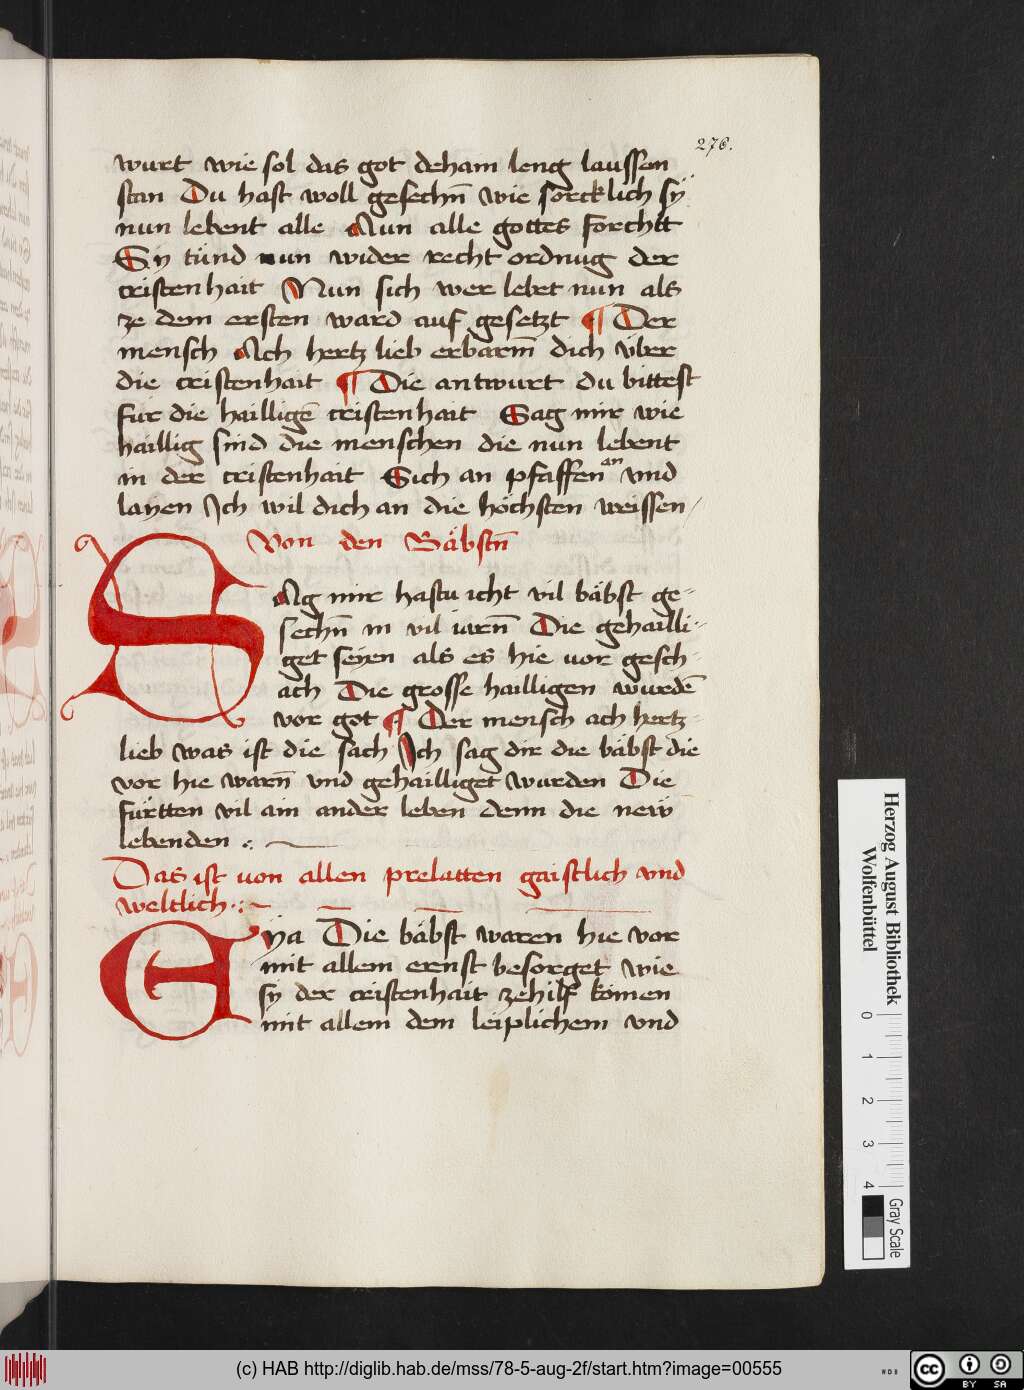 276.
wurt wie sol das got deham leng laussen
stan Du hast woll gesechn̄ wie sorcklich sÿ
nun lebent alle Aun alle gottes forchtt
Sy tünd nun wider recht ordnug der
cristenhait Nun sich wer lebet nun als
ze dem ersten ward auf gesetzt ¶ Der
mensch Ach hertz lieb erbarm̄ dich vber
die cristenhait ¶ Die antwurt du bittest
fur die hailligē cristenhait Sag mir wie
haillig sind die menschen die nun lebent
in der cristenhait Sich an pfaffen an vnd
layen Ich wil dich an die höchsten weissen /
Von den Bäbstn̄
SAg mir hastu icht vil bäbst ge-
sechn̄ in vil iarn̄ Die gehailli-
get seyen als es hie uor gesch-
ach Die grosse hailligen wurdē
vor got ¶ Der mensch ach hertz-
lieb was ist die sach Ich sag dir die bäbst die
vor hie warn̄ vnd gehailliget wurden Die
fürtten vil ain ander leben denn die new
lebenden :~
Das ist uon allen prelatten gaistlich vnd
weltlich :~
EYa Die bäbst waren hie vor
mit allem ernst besorget wie
sy der cristenhait zehilf komen
mit allem dem leiplichem vnd
Herzog August Bibliothek
Wolfenbüttel
0 1 2 3 4
Gray Scale
(c) HAB http://diglib.hab.de/mss/78-5-aug-2f/start.htm?image=00555
cc BY SA